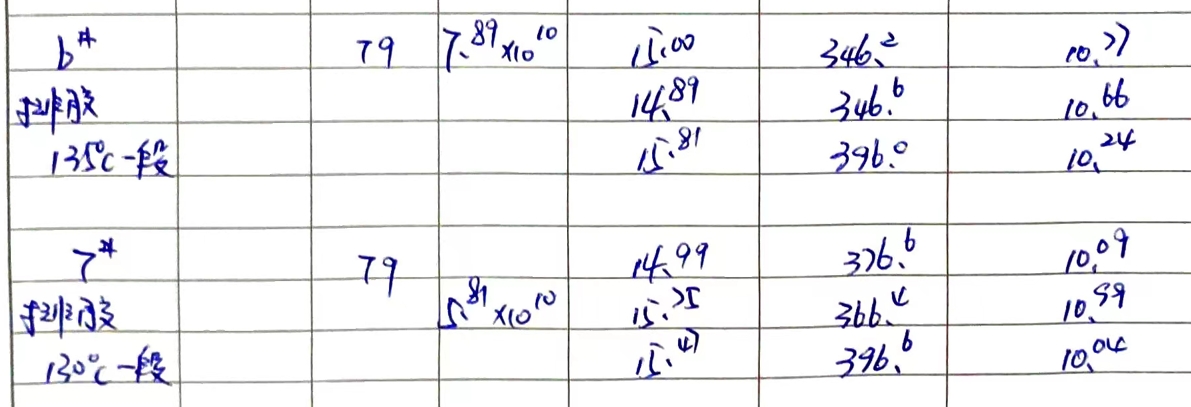 6# 79 7.89×10¹⁰ 15.00 346.2 10.27
排胶 14.89 346.6 10.66
135℃一段 15.81 396.0 10.24
7# 79 14.99 376.6 10.09
排胶 5.81×10¹⁰ 15.25 366.4 10.99
130℃一段 15.47 396.6 10.04